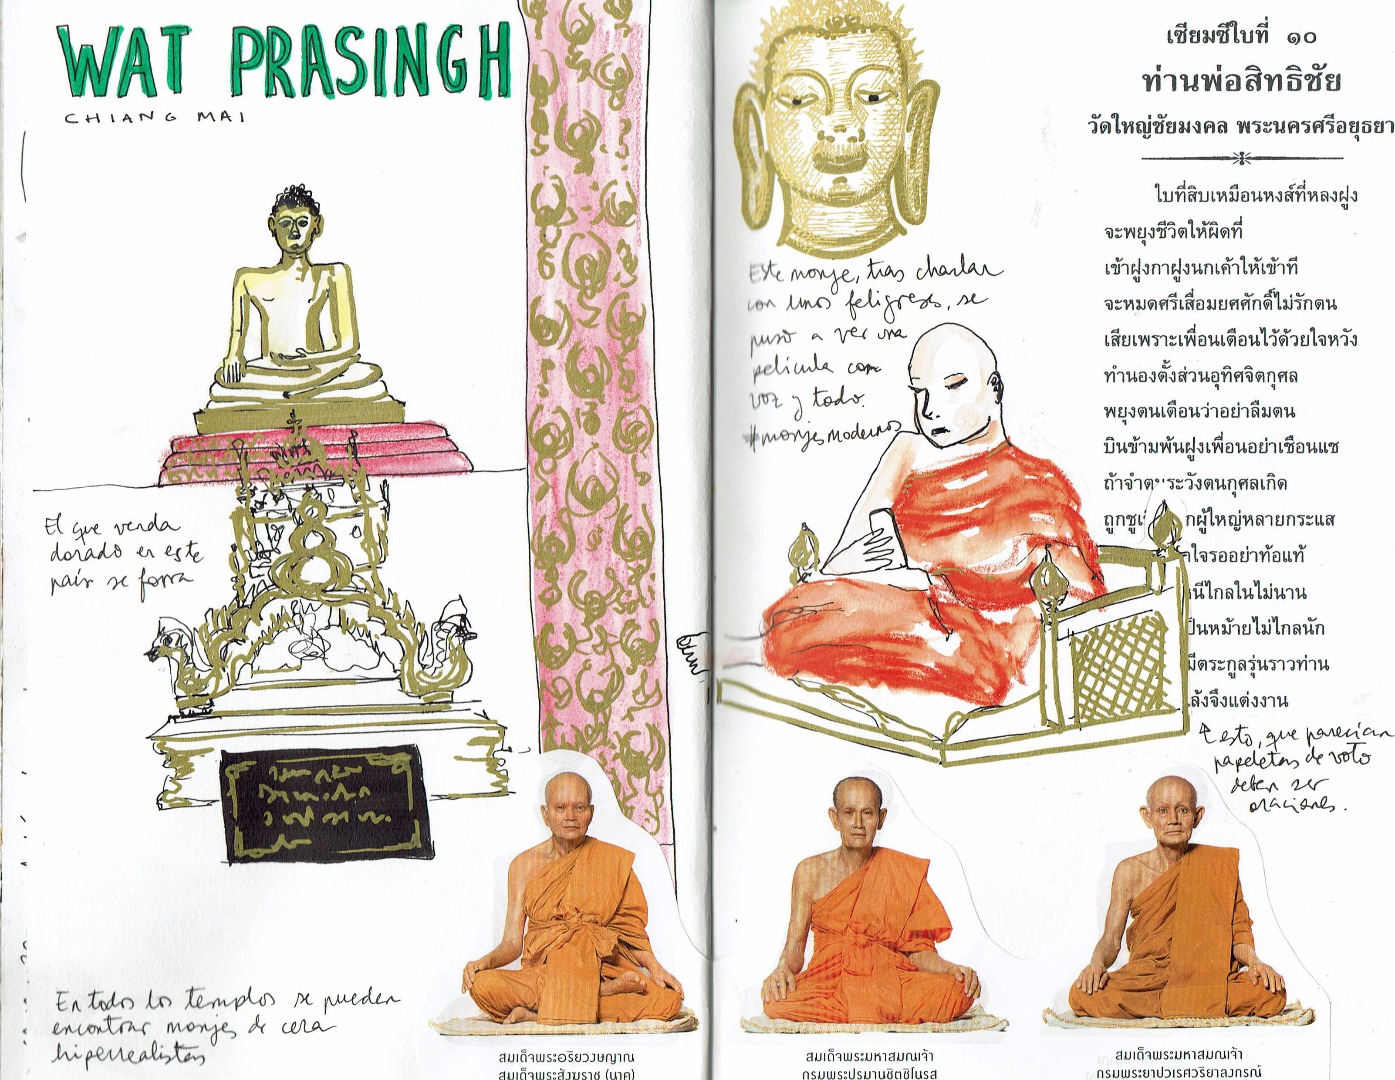 WAT PRASINGH
CHIANG MAI
El que venda
dorado en este
país se forra
En todos los templos se pueden
encontrar monjes de cera
hiperrealistas
สมเด็จพระอริยวงษญาณ
สมเด็จพระสังฆราช (นาค)
Este monje, tras charlar
con unos feligreses, se
puso a ver una
película con
voz y todo.
#monjesmodernos
เซียมซีใบที่ ๑๐
ท่านพ่อสิทธิชัย
วัดใหญ่ชัยมงคล พระนครศรีอยุธยา
ใบที่สิบเหมือนหงส์ที่หลงฝูง
จะพยุงชีวิตให้ผิดที่
เข้าฝูงกาฝูงนกเค้าให้เข้าที
จะหมดศรีเสื่อมยศศักดิ์ไม่รักตน
เสียเพราะเพื่อนเตือนไว้ด้วยใจหวัง
ทำนองตั้งส่วนอุทิศจิตกุศล
พยุงตนเตือนว่าอย่าลืมตน
บินข้ามพ้นฝูงเพื่อนอย่าเชือนแช
ถ้าจำต ระวังตนกุศลเกิด
ถูกชูเ กผู้ใหญ่หลายกระแส
ใจรออย่าท้อแท้
นีไกลในไม่นาน
ป็นหม้ายไม่ไกลนัก
มีตระกูลรุ่นราวท่าน
ลังจึงแต่งงาน
esto, que parecían
papeletas de voto
deben ser
oraciones.
สมเด็จพระมหาสมณเจ้า
กรมพระปรมานุชิตชิโนรส
สมเด็จพระมหาสมณเจ้า
กรมพระยาปวเรศวริยาลงกรณ์